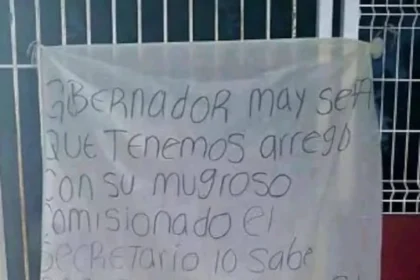 GOBERNADOR MAY SEPA
QUE TENEMOS arreglo
CON SU MUGROSO
COMISIONADO EL
SECRETARIO LO SABE